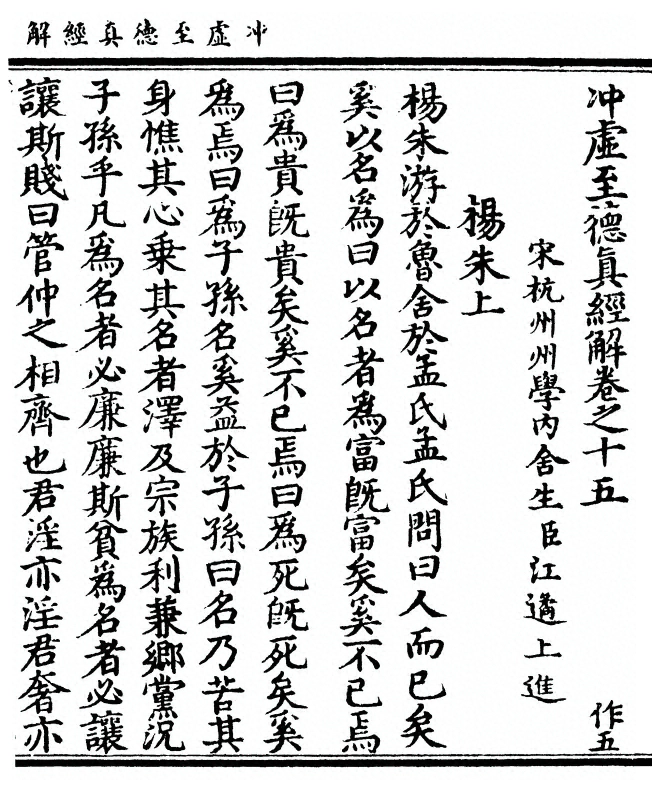 冲虛至德真經解
冲虛至德眞經解卷之十五
作五
宋杭州州學內舍生臣江遹上進
楊朱上
楊朱游於魯舍於孟氏孟氏問曰人而已矣
奚以名為曰以名者為富旣富矣奚不已焉
曰為貴旣貴矣奚不已焉曰為死旣死矣奚
為焉曰為子孫名奚益於子孫曰名乃苦其
身憔其心乗其名者澤及宗族利兼鄉黨況
子孫乎凡為名者必廉廉斯貧為名者必讓
讓斯賤曰管仲之相齊也君淫亦淫君奢亦